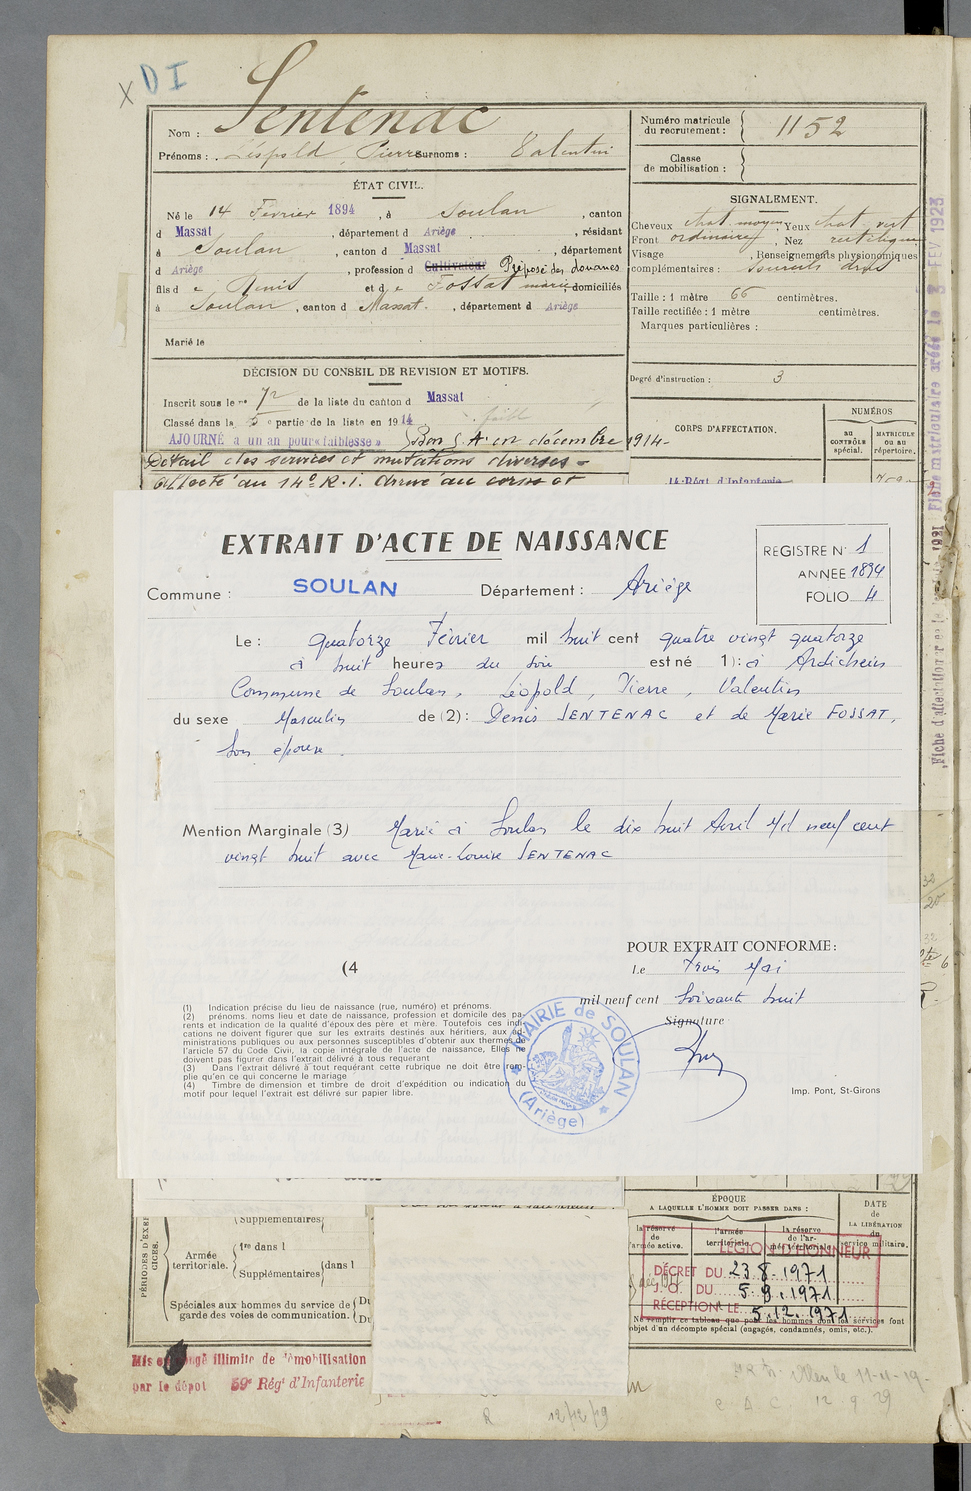 X DI
Nom : Sentenac
Prénoms : Léopold, Pierre Surnoms : Valentin
Numéro matricule
du recrutement : 1152
Classe
de mobilisation :
ÉTAT CIVIL.
Né le 14 Février 1894, à Soulan, canton
d Massat, département d Ariège, résidant
à Soulan, canton d Massat, département
d Ariège, profession d Cultivateur Préposé des douanes
fils de Denis et de Fossat marie domiciliés
à Soulan, canton d Massat, département d Ariège
Marié le
SIGNALEMENT.
Cheveux chat. moyen, Yeux chat vert
Front ordinaire, Nez rectiligne
Visage, Renseignements physionomiques
complémentaires : sourcils droits
Taille : 1 mètre 66 centimètres.
Taille rectifiée : 1 mètre centimètres.
Marques particulières :
Degré d'instruction : 3
DÉCISION DU CONSEIL DE REVISION ET MOTIFS.
Inscrit sous le n° 72 de la liste du canton d Massat
Classé dans la 5e partie de la liste en 1914
AJOURNÉ à un an pour «faiblesse» Bon S.A en décembre 1914-
Détail des services et mutations diverses -
Affecté au 14e R.I. Arrivé au corps et
CORPS D'AFFECTATION.
NUMÉROS
au
CONTRÔLE
spécial.
MATRICULE
ou au
répertoire.
14 Régt d'Infanterie
EXTRAIT D'ACTE DE NAISSANCE
REGISTRE N° 1
ANNEE 1894
FOLIO 4
Commune : SOULAN Département : Ariège
Le : quatorze Février mil huit cent quatre vingt quatorze
à huit heures du soir est né 1) : à Ardichein
Commune de Soulan, Léopold, Pierre, Valentin
du sexe Masculin de (2) : Denis SENTENAC et de Marie FOSSAT,
son épouse.
Mention Marginale (3) Marié à Soulan le dix huit Avril Mil neuf cent
vingt huit avec Marie-Louise SENTENAC
(4
POUR EXTRAIT CONFORME :
Le Trois Mai
mil neuf cent soixante huit
Signature
MAIRIE de SOULAN
(Ariège)
(1) Indication précise du lieu de naissance (rue, numéro) et prénoms.
(2) prénoms, noms lieu et date de naissance, profession et domicile des pa-
rents et indication de la qualité d'époux des père et mère. Toutefois ces indi-
cations ne doivent figurer que sur les extraits destinés aux héritiers, aux ad-
ministrations publiques ou aux personnes susceptibles d'obtenir aux thermes de
l'article 57 du Code Civii, la copie intégrale de l'acte de naissance, Elles ne
doivent pas figurer dans l'extrait délivré à tous requérant
(3) Dans l'extrait délivré à tout requérant cette rubrique ne doit être rem-
plie qu'en ce qui concerne le mariage
(4) Timbre de dimension et timbre de droit d'expédition ou indication du
motif pour lequel l'extrait est délivré sur papier libre.
Imp. Pont, St-Girons
PÉRIODES D'EXER
CICES.
Supplémentaires
Armée
territoriale.
1re dans l
Supplémentaires dans l
Spéciales aux hommes du service de
garde des voies de communication.
Du
Du
ÉPOQUE
A LAQUELLE L'HOMME DOIT PASSER DANS :
la réserve
de
l'armée active.
l'armée
territoriale.
la réserve
de l'ar-
mée territoriale.
DATE
de
LA LIBÉRATION
du
service militaire.
LEGION D'HONNEUR
DÉCRET DU 23.8.1971
J. O. DU 5.9.1971
RÉCEPTION LE 5.12.1971
Ne remplir ce tableau que pour les hommes dont les services font
objet d'un décompte spécial (engagés, condamnés, omis, etc.).
Mis en congé illimité de démobilisation
par le dépôt 59e Régt d'Infanterie
R 12/12/19
C.A.C. 12.9.29